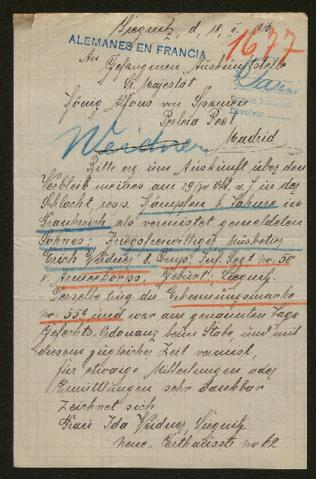 Liegnitz, d. 18.
ALEMANES EN FRANCIA
1677
An
Gefangenen Auskunftstelle
Sr. Majestät
König Alfons von Spanien
Madrid
Weidner
Bitte erg. um Auskunft über den
Verbleib meines am 29/30 Okt. v. J. in der
Schlacht, resp. Kämpfen b. in
Frankreich als vermisst gemeldeten
Sohnes: Kriegsfreiwilliger Musketier
Erich Weidner 8. Comp. Inf. Regt no. 50
v. Armeekorps. Geburt: Liegnitz.
Derselbe trug die Erkennungsmarke
no. 550 und war am genannten Tage
Gefechts-Ordonanz beim Stabe, und mit
diesem zugleicher Zeit vermisst,
für etwaige Mitteilungen oder
Ermittlungen sehr dankbar
zeichnet sich
Frau Ida Weidner, Liegnitz
Neue no 62